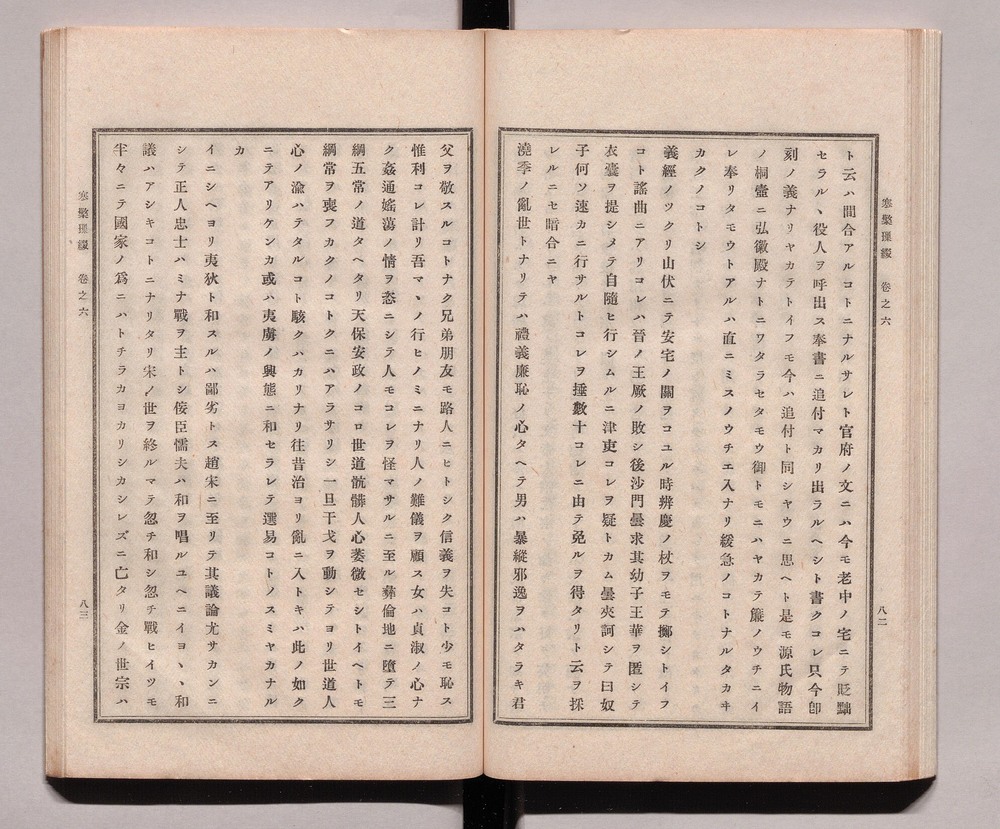 寒檠璅綴 卷之六
八二
ト云ハ間合アルコトニナルサレト官府ノ文ニハ今モ老中ノ宅ニテ貶黜
セラルヽ役人ヲ呼出ス奉書ニ追付マカリ出ラルヘシト書クコレ只今卽
刻ノ義ナリヤカテトイフモ今ハ追付ト同シヤウニ思ヘト是モ源氏物語
ノ桐壺ニ弘徽殿ナトニワタラセタモウ御トモニハヤカテ簾ノウチニイ
レ奉リタモウトアルハ直ニミスノウチエ入ナリ緩急ノコトナルタカヰ
カクノコトシ
義經ノツクリ山伏ニテ安宅ノ關ヲコユル時辨慶ノ杖ヲモテ擲シトイフ
コト謠曲ニアリコレハ晉ノ王厥ノ敗シ後沙門曇求其幼子王華ヲ匿シテ
衣囊ヲ提シメテ自隨ヒ行シムルニ津吏コレヲ疑トカム曇夾訶シテ曰奴
子何ソ速カニ行サルトコレヲ捶數十コレニ由テ免ルヲ得タリト云ヲ採
レルニセ暗合ニヤ
澆季ノ亂世トナリテハ禮義廉恥ノ心タヘテ男ハ暴縱邪逸ヲハタラキ君
父ヲ敬スルコトナク兄弟朋友モ路人ニヒトシク信義ヲ失コト少モ恥ス
惟利コレ計リ吾マヽノ行ヒノミニナリ人ノ難儀ヲ顧ス女ハ貞淑ノ心ナ
ク姦通婬蕩ノ情ヲ恣ニシテ人モコレヲ怪マサルニ至ル彝倫地ニ墮テ三
綱五常ノ道タヘタリ天保安政ノコロ世道骯髒人心萎微セシトイヘトモ
綱常ヲ喪フカクノコトクニハアラサリシ一旦干戈ヲ動シテヨリ世道人
心ノ渝ハテタルコト駭クハカリナリ往昔治ヨリ亂ニ入トキハ此ノ如ク
ニテアリケンカ或ハ夷虜ノ興態ニ和セラレテ選易コトノスミヤカナル
カ
イニシヘヨリ夷狄ト和スルハ鄙劣トス趙宋ニ至リテ其議論尤サカンニ
シテ正人忠士ハミナ戰ヲ主トシ侫臣懦夫ハ和ヲ唱ルユヘニイヨヽヽ和
議ハアシキコトニナリタリ宋ノ世ヲ終ルマテ忽チ和シ忽チ戰ヒイツモ
半々ニテ國家ノ爲ニハトチラカヨカリシカシレズニ亡タリ金ノ世宗ハ
寒檠璅綴 卷之六
八三